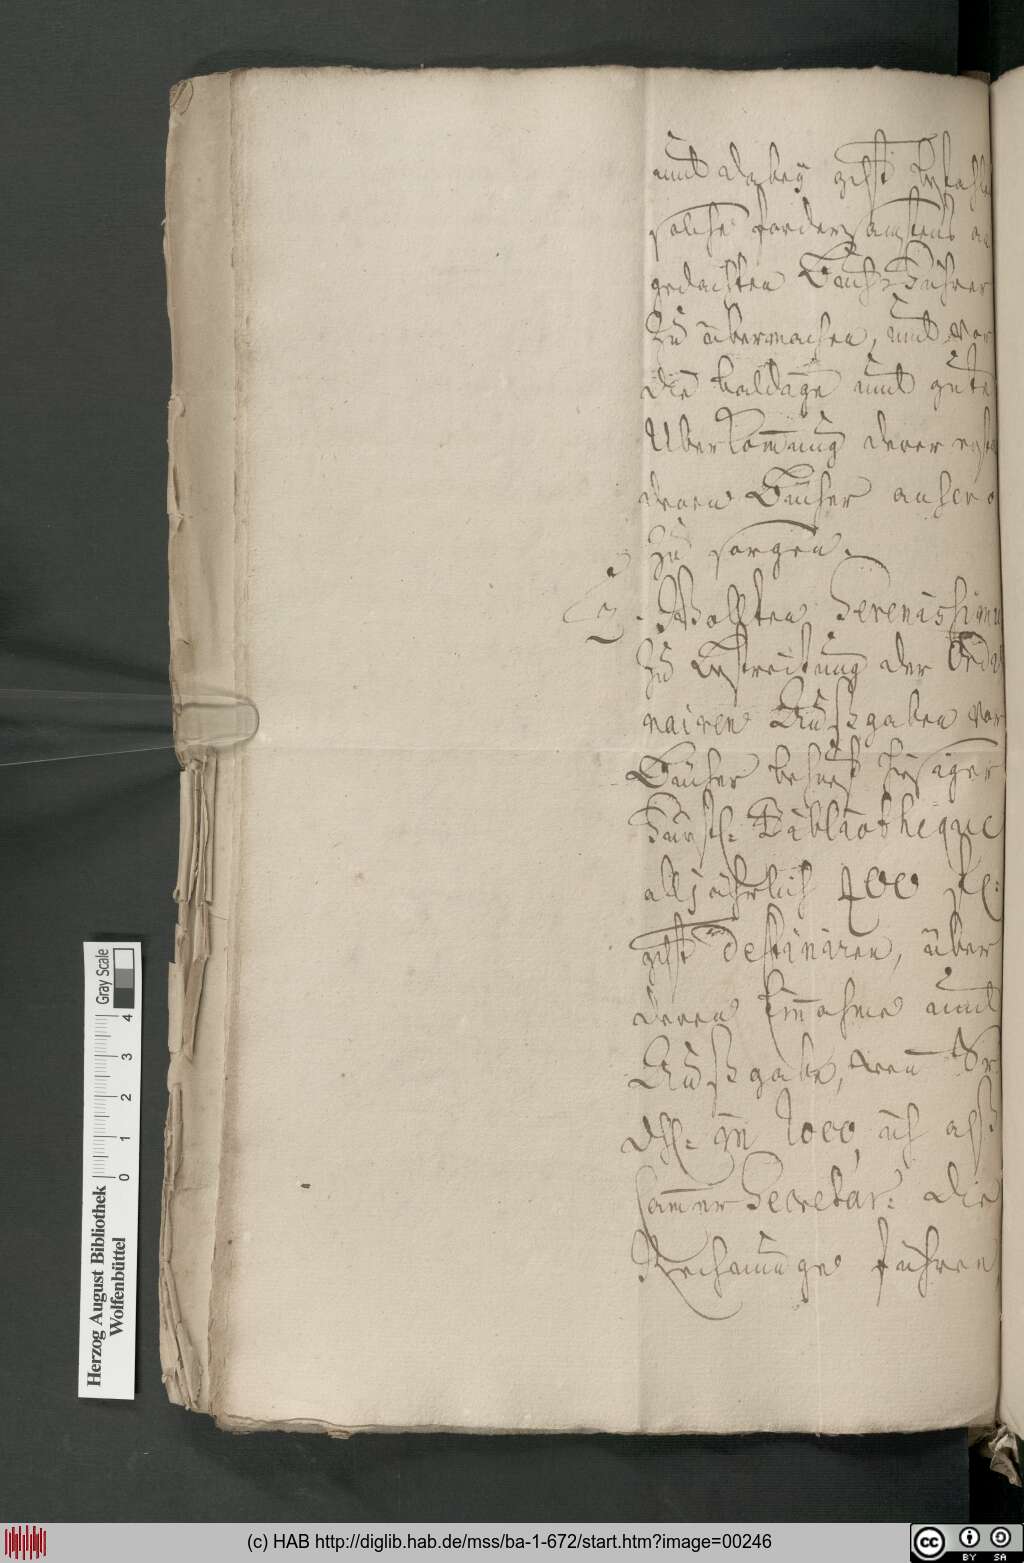 und dabey gdst befohlen
solche fordersamstens an
gedachten Buch-Führer
zu übermachen, und vor
die baldige und gute
Überkommung derer
deren Bücher anhero
zu sorgen.
3. Wollten Serenissimus
zu bestreitung der Ordi
nairen Außgaben vor
Bücher behuef hiesiger
Fürstl: Bibliotheque
alljährlich 400 Rl:
gdst destiniren, über
deren Einnahme und
Außgabe, wenn Sr
Dhl: in loco, ich alß
Cammer Secretar: die
Rechnunge führen
Herzog August Bibliothek
Wolfenbüttel
0 1 2 3 4
Gray Scale
(c) HAB http://diglib.hab.de/mss/ba-1-672/start.htm?image=00246
cc BY SA